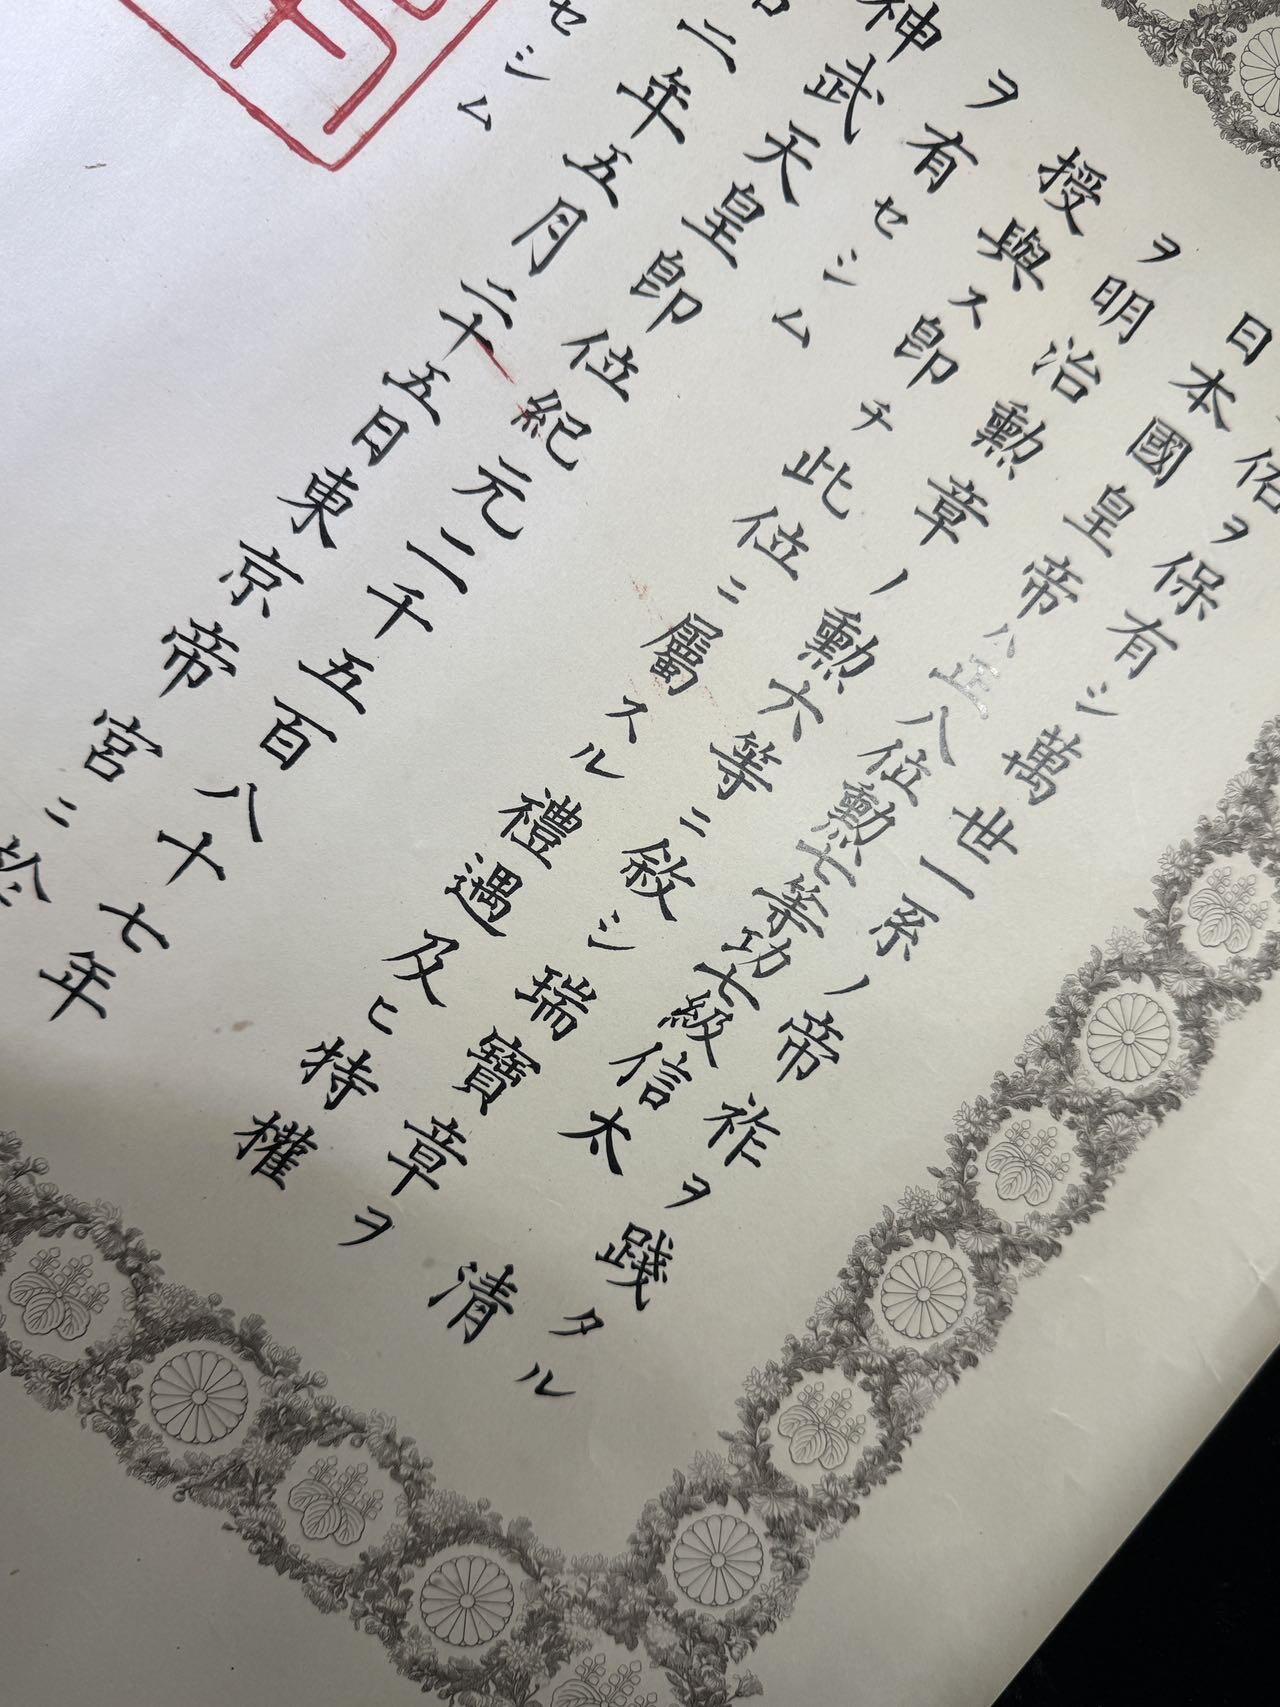 佑ヲ保有シ萬世一系ノ帝祚ヲ踐タル
日本國皇帝ハ正八位勲七等功七級信太清
ヲ明治勲章ノ勲六等ニ敍シ瑞寶章ヲ
授與ス即チ此位ニ屬スル禮遇及ヒ特權
ヲ有セシム
神武天皇即位紀元二千五百八十七年
二年五月二十五日東京帝宮ニ於
セシム